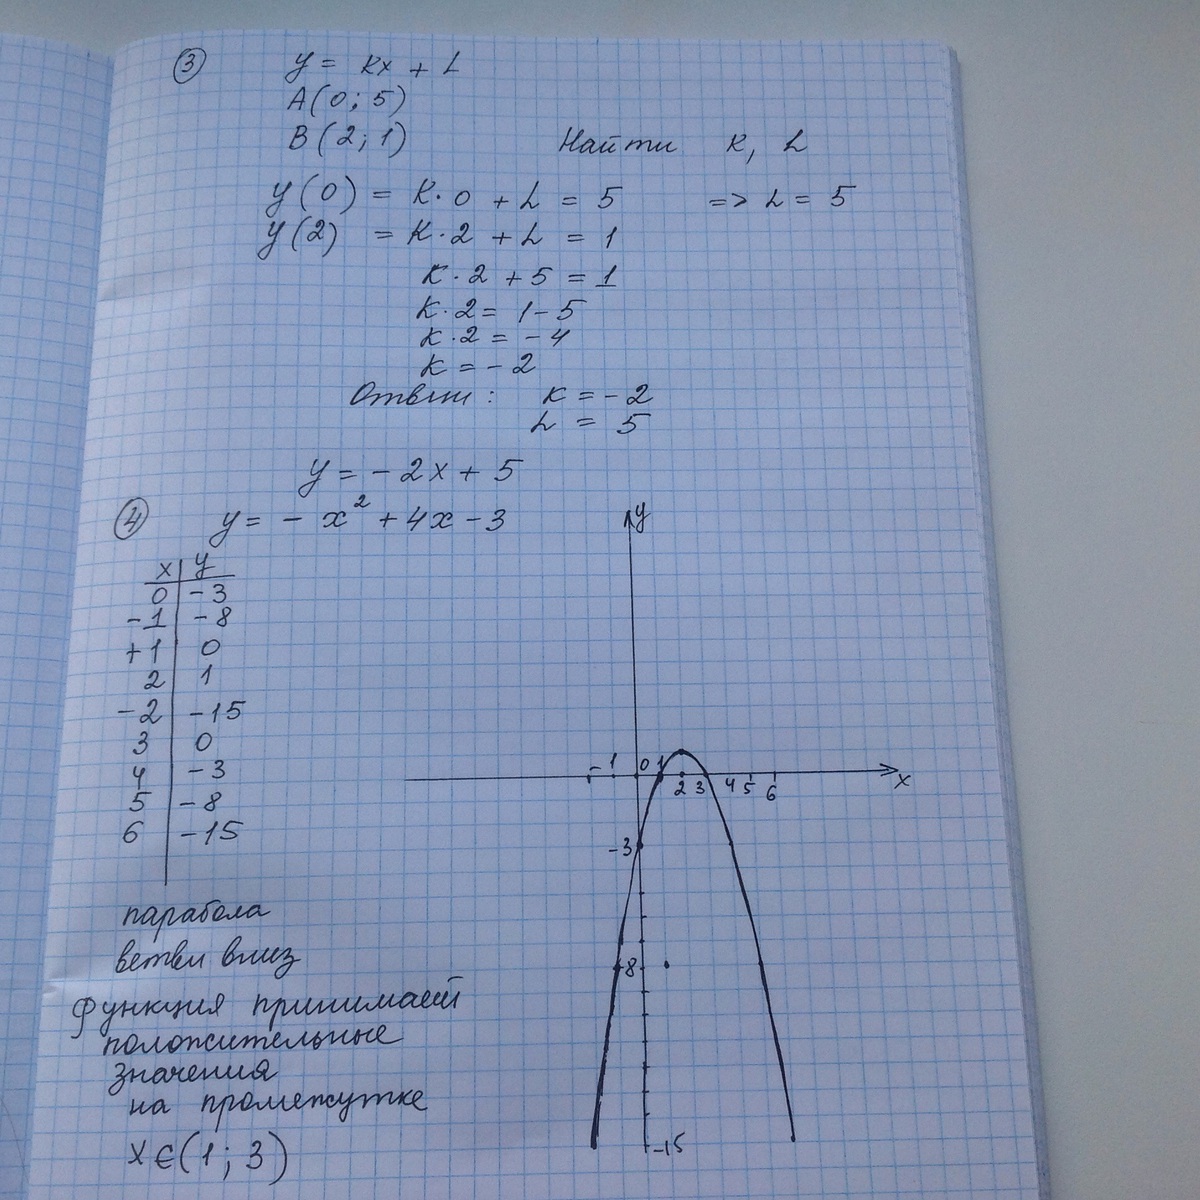 ③ y = kx + L
A(0; 5)
B(2; 1) Найти k, L
y(0) = k·0 + L = 5 => L = 5
y(2) = k·2 + L = 1
k·2 + 5 = 1
k·2 = 1-5
k·2 = -4
k = -2
Ответ: k = -2
L = 5
y = -2x + 5
④ y = - x² + 4x - 3
x y
0 -3
-1 -8
+1 0
2 1
-2 -15
3 0
4 -3
5 -8
6 -15
парабола
ветви вниз
функция принимает
положительные
значения
на промежутке
x∈(1; 3)
y
-1 0 1 2 3 4 5 6 x
-3
-8
-15